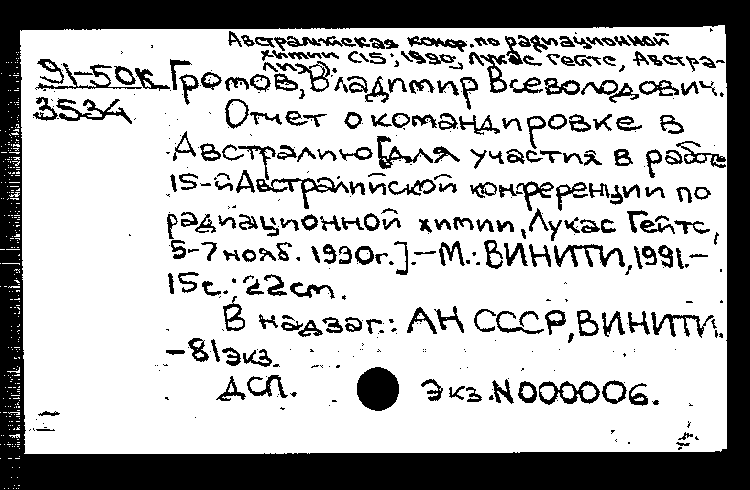 Австралийская конф. по радиационной
химии (15; 1990; Лукас Гейтс, Австра-
лия).
91-50к Громов, Владимир Всеволодович.
3534
Отчет о командировке в
Австралию [для участия в работе
15-й Австралийской конференции по
радиационной химии, Лукас Гейтс,
5-7 нояб. 1990г.].-М.: ВИНИТИ, 1991.-
15с.; 22cm.
В надзаг.: АН СССР, ВИНИТИ.
-81экз.
ДСП. Экз. N000006.